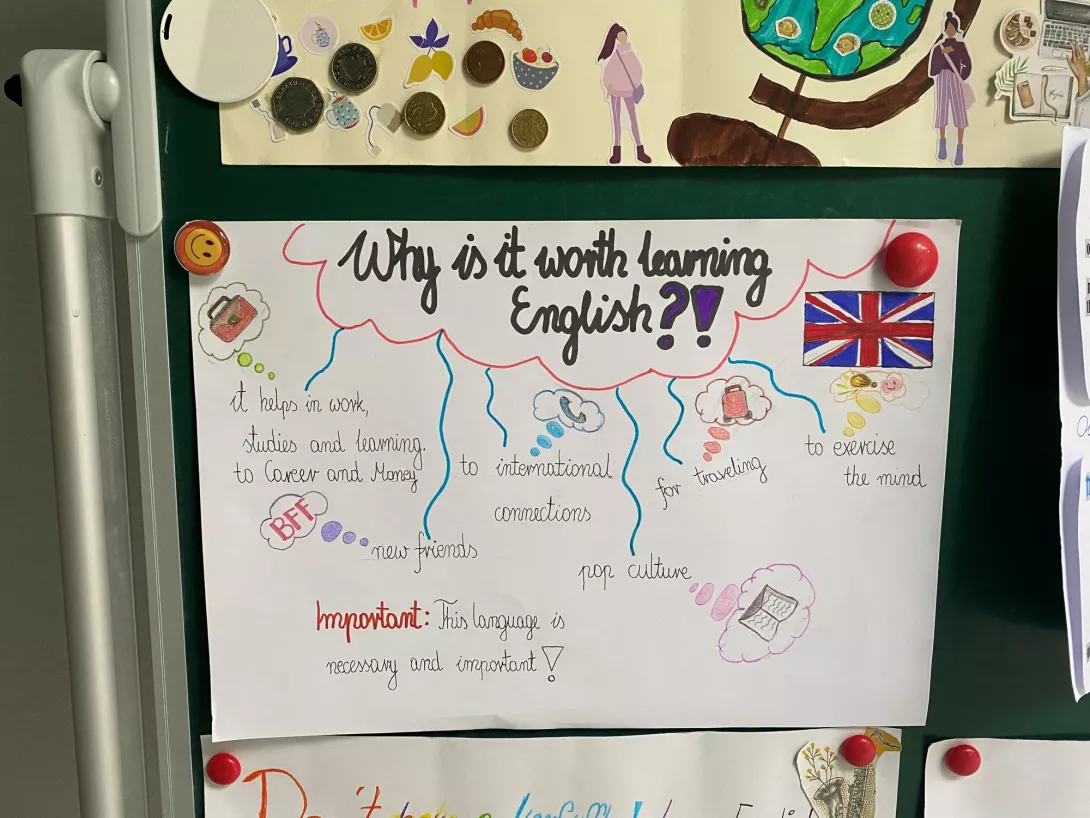 Why is it worth learning
English?!
it helps in work,
studies and learning.
to Career and Money
to international
connections
for traveling
to exercise
the mind
BFF
new friends
pop culture
Important: This language is
necessary and important!
Don't